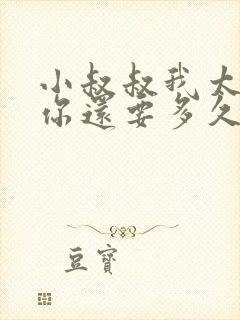 小叔叔我太
你還要多久
豆寶